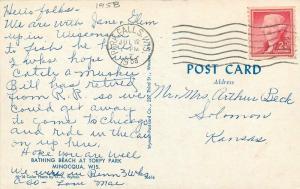 1958
Hello folks -
We are with Jane & Glen
up in Wisconsin
to fish he
who hope
Catch a Muskey
Bill has retired
from R.R. so we
Could get away
to come to Chicago
and ride in the air
on up here.
Hope you are well
We were in Penn 3 wks
ago - Love Mae
FALLS, WIS.
PM
1958
2¢
POST CARD
Address
Mr. Mrs. Arthur Beck
Solomon
Kansas
BATHING BEACH AT TORPY PARK
MINOCQUA, WIS.